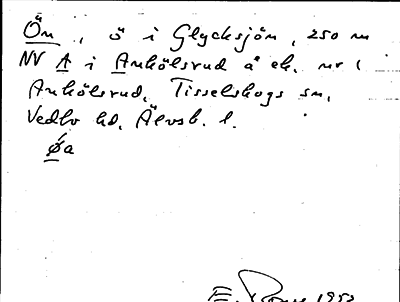 Ön, ö i Glycksjön, 250 m
NV A i Anhölsrud å ek. nr 1
Anhölsrud, Tisselskogs sn,
Vedbo hd, Älvsb. l.
øa
1953